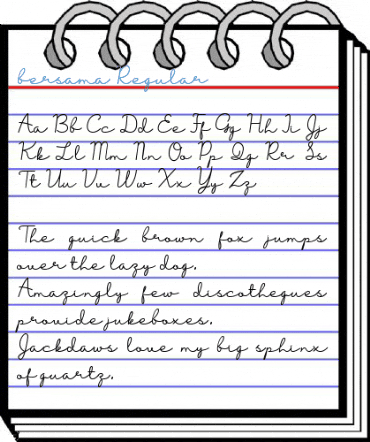 bersama Regular
Aa Bb Cc Dd Ee Ff Gg Hh Ii Jj
Kk Ll Mm Nn Oo Pp Qq Rr Ss
Tt Uu Vv Ww Xx Yy Zz
The quick brown fox jumps
over the lazy dog.
Amazingly few discotheques
provide jukeboxes.
Jackdaws love my big sphinx
of quartz.